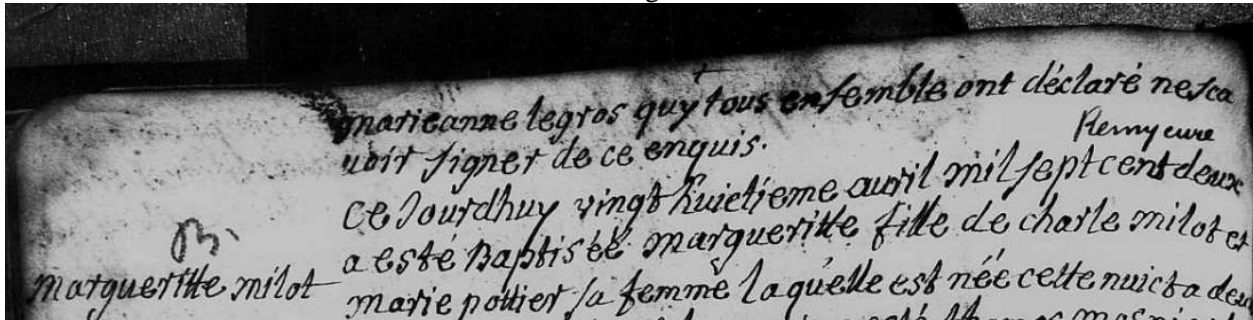 marieanne legros quy tous ensemble ont déclaré nesca
uoir signer de ce enquis.
Remy cure
ce Jourdhuy vingt huictieme auril mil sept cent deux
a esté Baptisée margueritte fille de charle milot et
margueritte milot
marie pottier sa femme laquelle est née cette nuict a deux